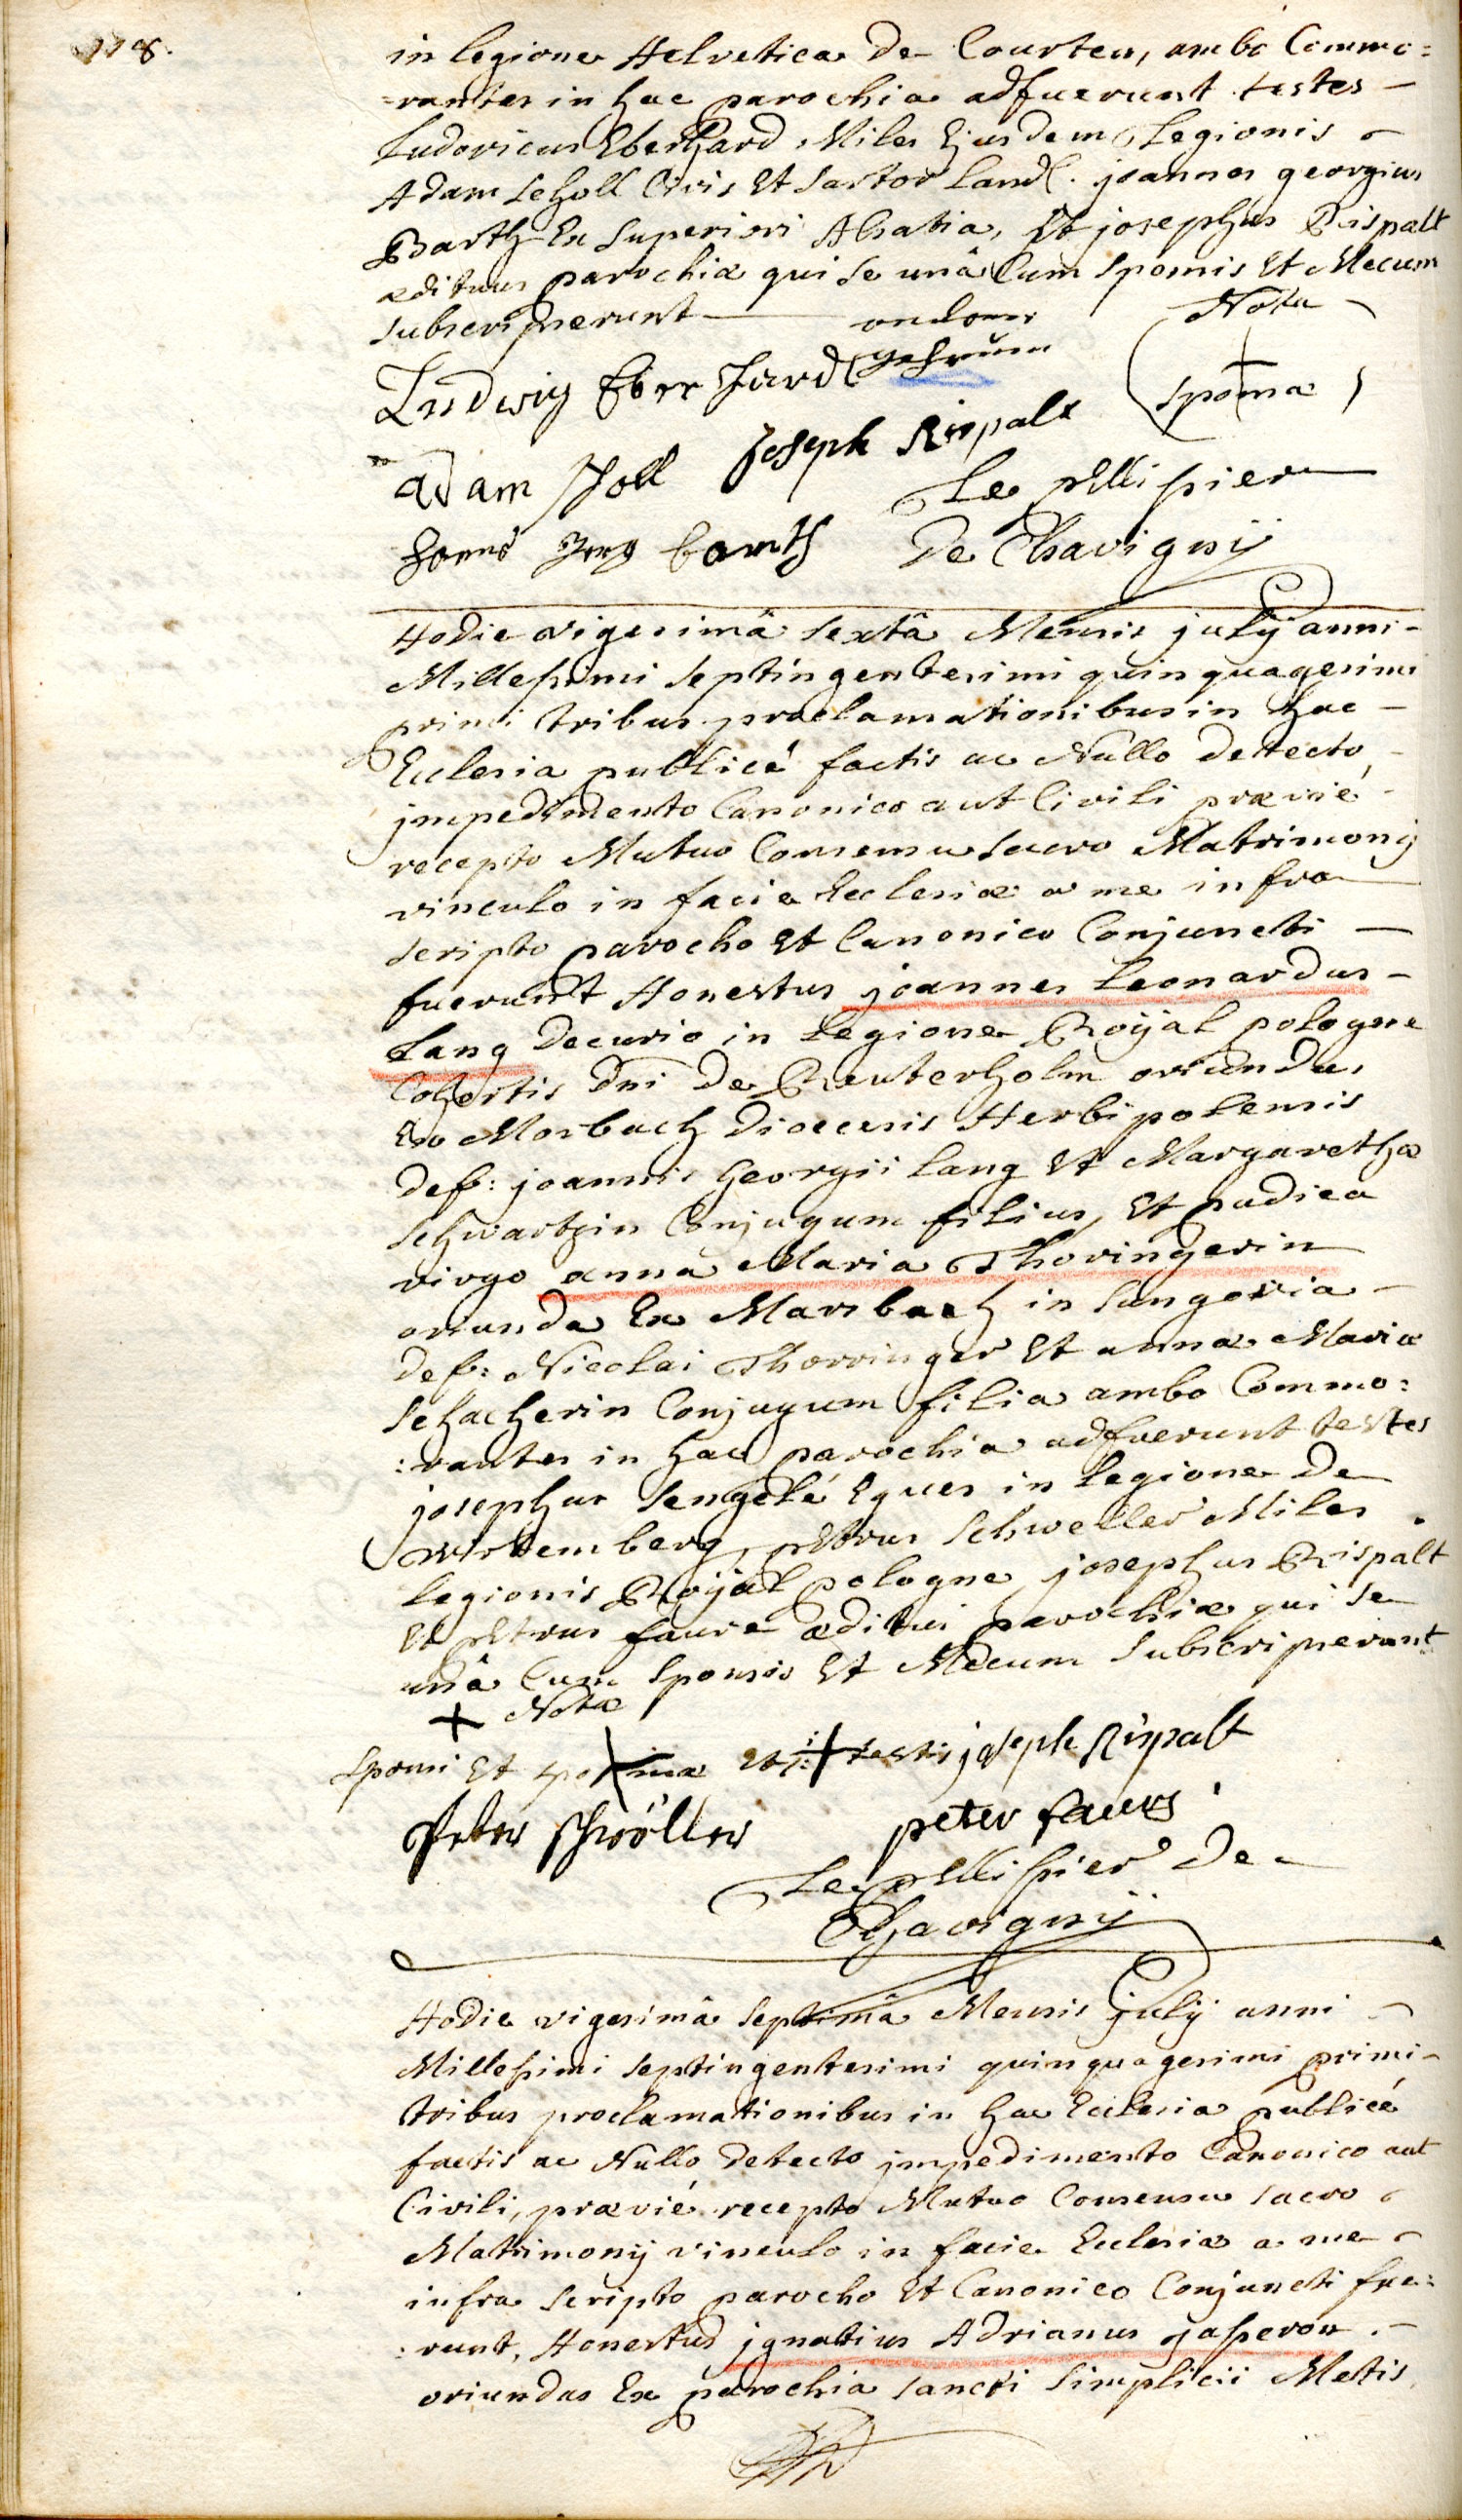 118.
in legione Helvetica De Courten, ambo Commo=
=rantes in hac parochia adfuerunt testes
Ludovicus Eberhard Miles Ejusdem Legionis
Adam Scholl Civis Et Sartor Land. joannes georgius
Barth Ex Superiori Alsatia, Et josephus Rispalt
ædituus parochiæ qui se unâ Cum sponsis Et Mecum
subscripserunt
Nota
Ludwig Eberhard
sponsæ
adam scholl Joseph Rispalt
Le pellissier
hanß Jerg barth De Chavignÿ
Hodie vigesimâ sextâ Mensis julÿ anni
Millesimi septingentesimi quinquagesimi
primi tribus proclamationibus in hac
Ecclesia publicé factis ac Nullo detecto
jmpedimento Canonico aut Civili prævié
recepto Mutuo Consensu sacro Matrimonÿ
vinculo in facie Ecclesiæ a me infra
scripto parocho Et Canonico Conjuncti
fuerunt Honestus joannes Leonardus
Lang Decurio in Legione Roÿal pologne
Cohortis Dni De Reuterholm oriundus
Ex Mosbach Dioecesis Herbipolensis
def: joannis Georgii Lang Et Margarethæ
schwartzin Conjugum filius, Et pudica
virgo anna Maria Thoringerin
oriunda Ex Marsbach in Sungovia
def: Nicolai Thorringer Et annæ Mariæ
schacherin Conjugum filia ambo Commo:
:rantes in hac parochia adfuerunt testes
josephus Sengelé Eques in Legione De
Wirtemberg, petrus Schweller Miles
Legionis Roÿal pologne, josephus Rispalt
Et petrus faure æditui parochiæ qui se
unâ Cum sponsis Et Mecum subscripserunt
+ Notæ
sponsi Et sponsæ Et testis joseph Rispalt
Peter schwöller peter faure
Le pellissier De
Chavignÿ
Hodie vigesimâ septimâ Mensis julÿ anni
Millesimi septingentesimi quinquagesimi primi
tribus proclamationibus in hac Ecclesia publicé
factis ac Nullo detecto jmpedimento Canonico aut
Civili, prævié recepto Mutuo Consensu sacro
Matrimonÿ vinculo in facie Ecclesiæ a me
infra scripto parocho Et Canonico Conjuncti fue:
:runt, Honestus jgnatius Adrianus jasperon
oriundus Ex parochia sancti simplicii Metis